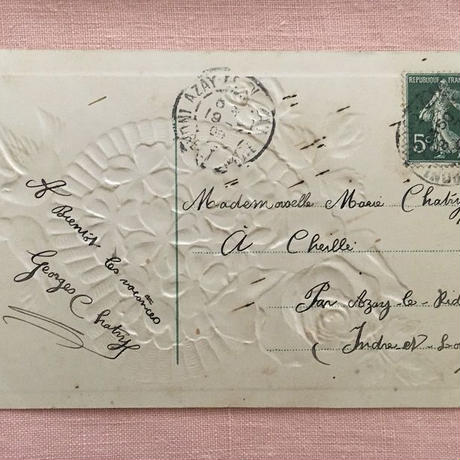 A Bientôt les vacances
Georges Chatry
REPUBLIQUE FRAN
5c
AZAY
Mademoiselle Marie Chatry
À Cheillé
Par Azay-le-Rid
Indre-et-Lo